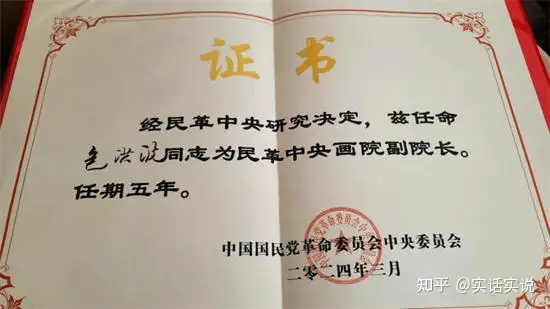 证书
经民革中央研究决定，兹任命
包洪波同志为民革中央画院副院长。
任期五年。
中国国民党革命委员会中央委员会
二零二四年三月
知乎 @实话实说